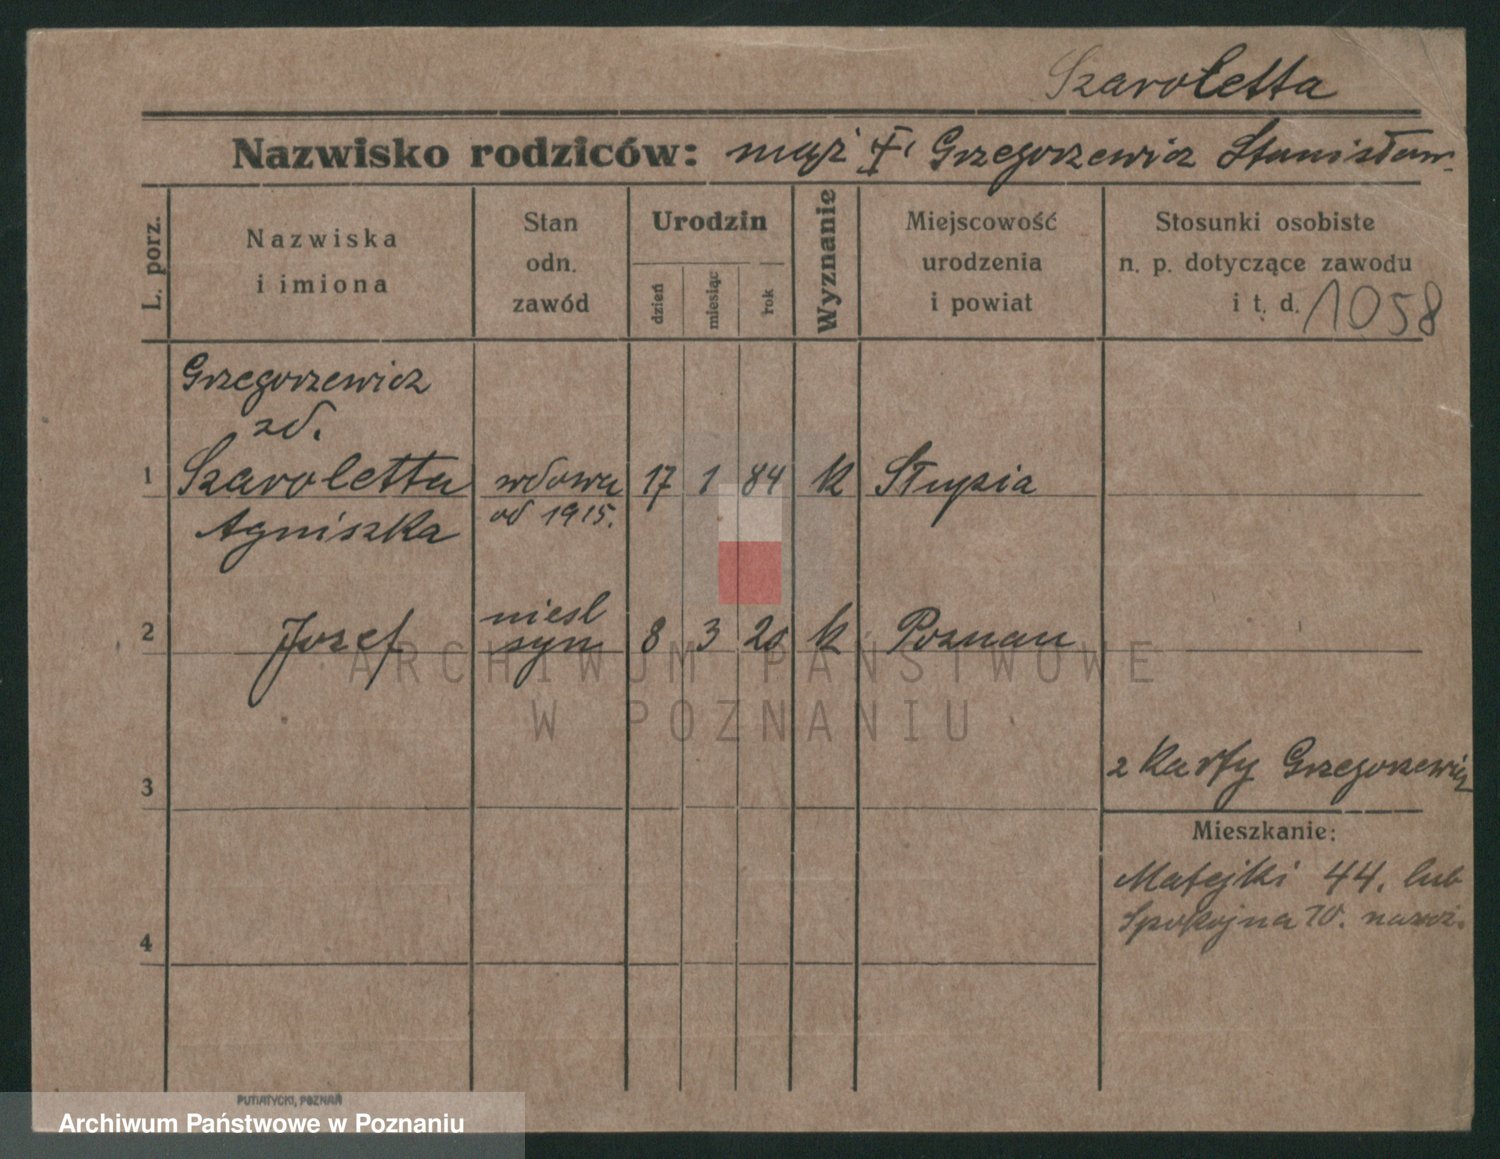 Szaroletta
Nazwisko rodziców: mąż I, Grzegorzewicz Stanisław
L. porz.
Nazwiska
i imiona
Stan
odn.
zawód
Urodzin
dzień
miesiąc
rok
Wyznanie
Miejscowość
urodzenia
i powiat
Stosunki osobiste
n. p. dotyczące zawodu
i t. d. 1058
Grzegorzewicz
zd.
1 Szaroletta wdowa 17 1 84 k Słupia
Agniszka od 1915.
niesl
2 Jozef syn 8 3 20 k Poznan
2 Karty Grzegorzewicz
3
Mieszkanie:
Matejki 44. lub
Spokojna 10.
4
PUTIATYCKI, POZNAŃ
ARCHIWUM PAŃSTWOWE
W POZNANIU
Archiwum Państwowe w Poznaniu